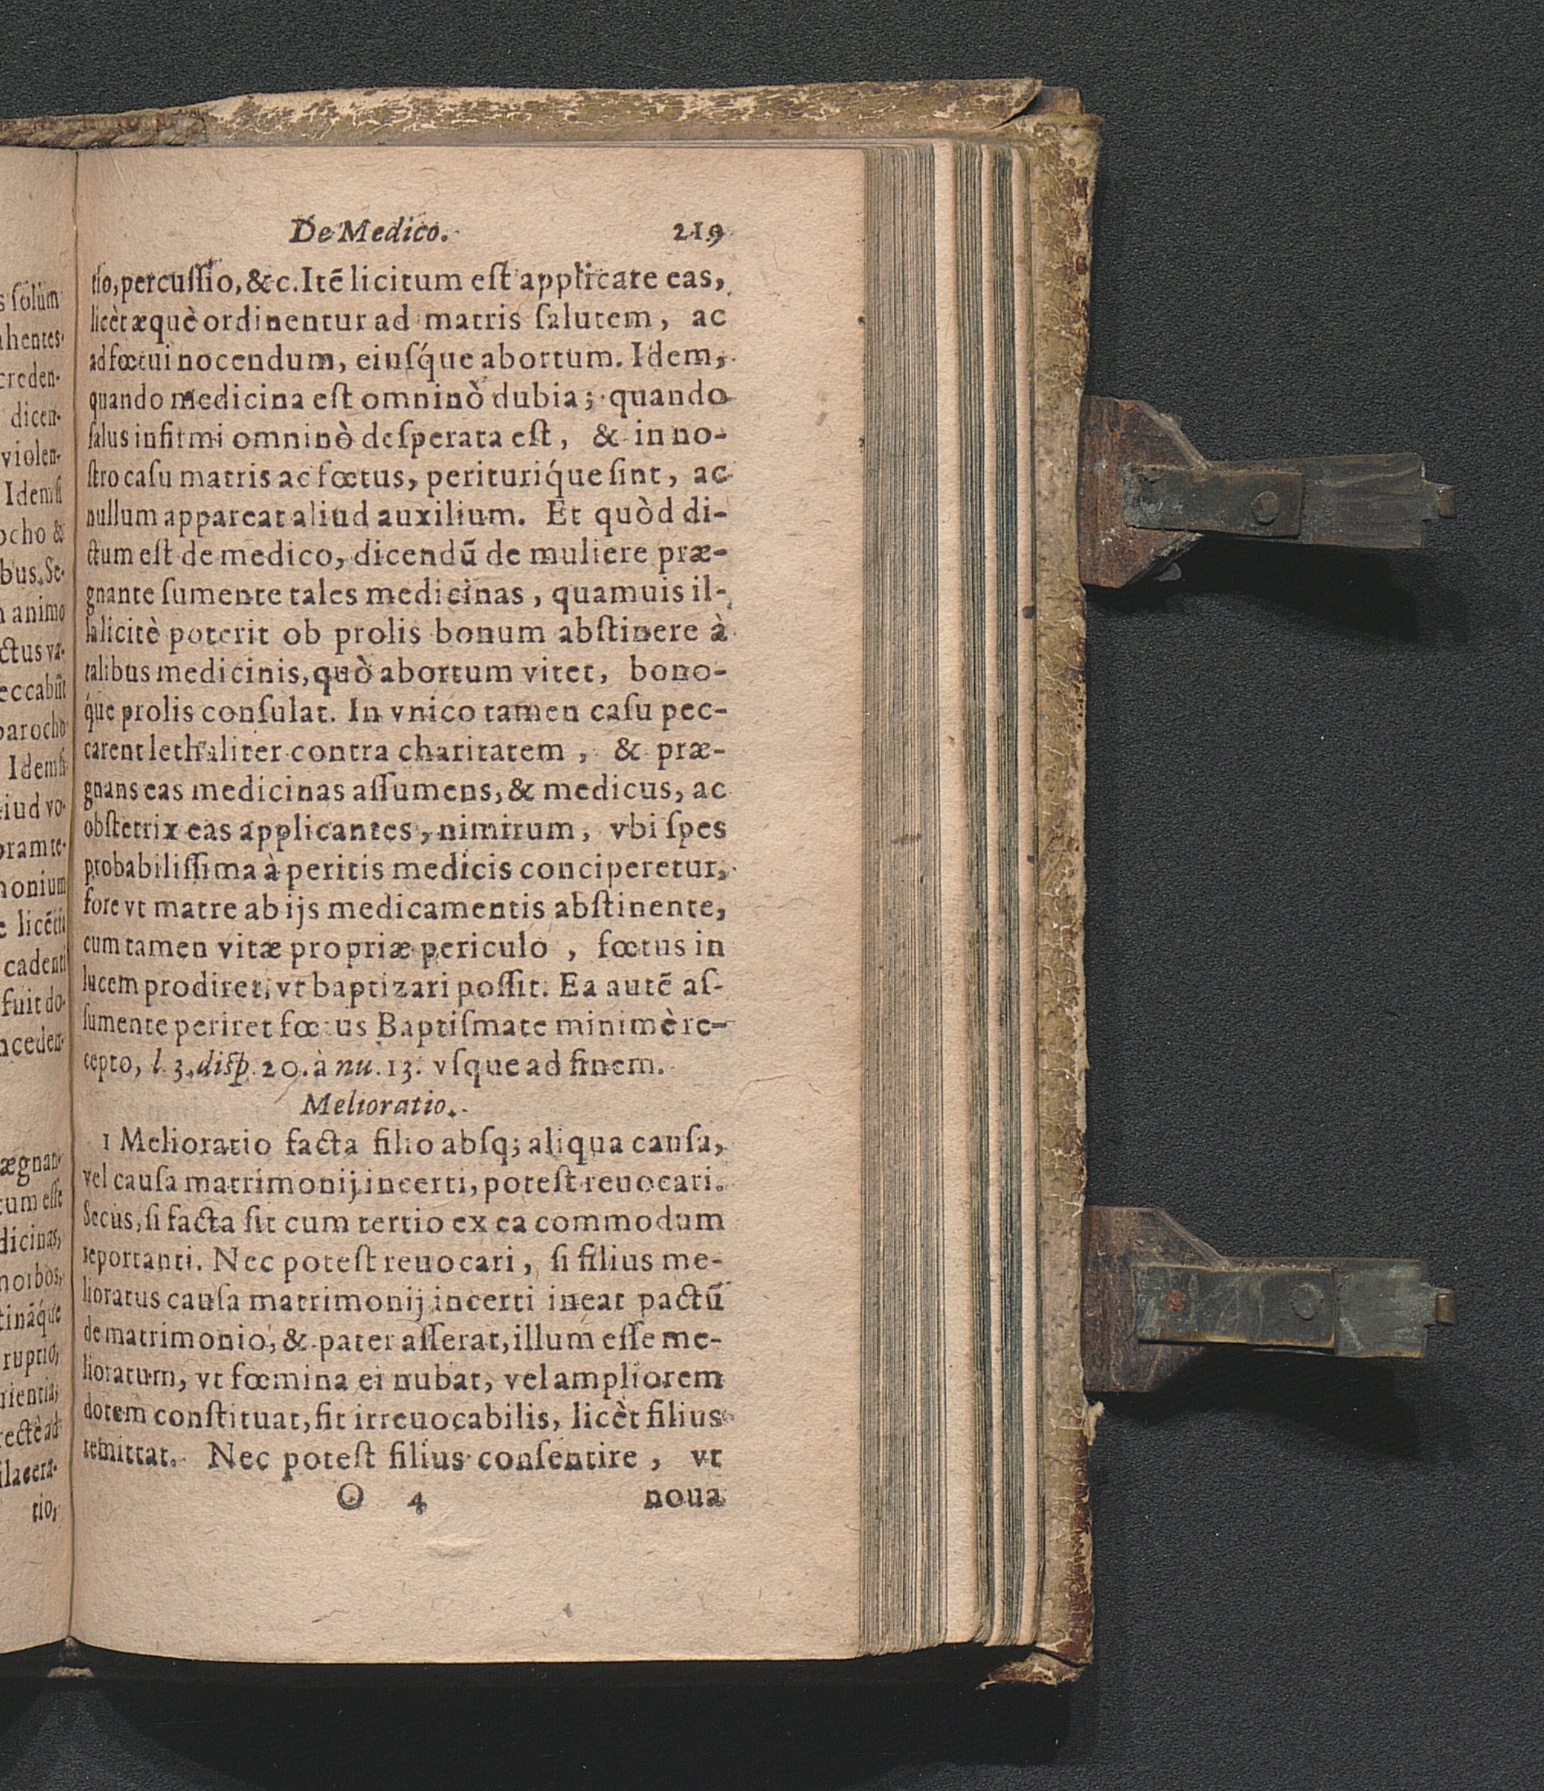 De Medico. 219
tio, percussio, &c. Itẽ licitum est applicare eas,
licèt æquè ordinentur ad matris salutem, ac
ad fœtui nocendum, eiusq́ue abortum. Idem,
quando medicina est omninò dubia; quando
salus infirmi omninò desperata est, & in no-
stro casu matris ac fœtus, perituriq́ue sint, ac
nullum appareat aliud auxilium. Et quòd di-
ctum est de medico, dicendũ de muliere præ-
gnante sumente tales medicinas, quamuis il-
la licitè poterit ob prolis bonum abstinere à
talibus medicinis, quò abortum vitet, bono-
q́ue prolis consulat. In vnico tamen casu pec-
carent lethaliter contra charitatem, & præ-
gnans eas medicinas assumens, & medicus, ac
obstetrix eas applicantes, nimirum, vbi spes
probabilissima à peritis medicis conciperetur,
fore vt matre ab ijs medicamentis abstinente,
cum tamen vitæ propriæ periculo, fœtus in
lucem prodiret, vt baptizari possit. Ea autẽ as-
sumente periret fœtus Baptismate minimè re-
cepto, l. 3. disp. 20. à nu. 13. vsque ad finem.
Melioratio.
1 Melioratio facta filio absq; aliqua causa,
vel causa matrimonij incerti, potest reuocari.
Secùs, si facta sit cum tertio ex ea commodum
reportanti. Nec potest reuocari, si filius me-
lioratus causa matrimonij incerti ineat pactũ
de matrimonio, & pater asserat, illum esse me-
lioratum, vt fœmina ei nubat, vel ampliorem
dotem constituat, fit irreuocabilis, licèt filius
remittat. Nec potest filius consentire, vt
O 4 noua